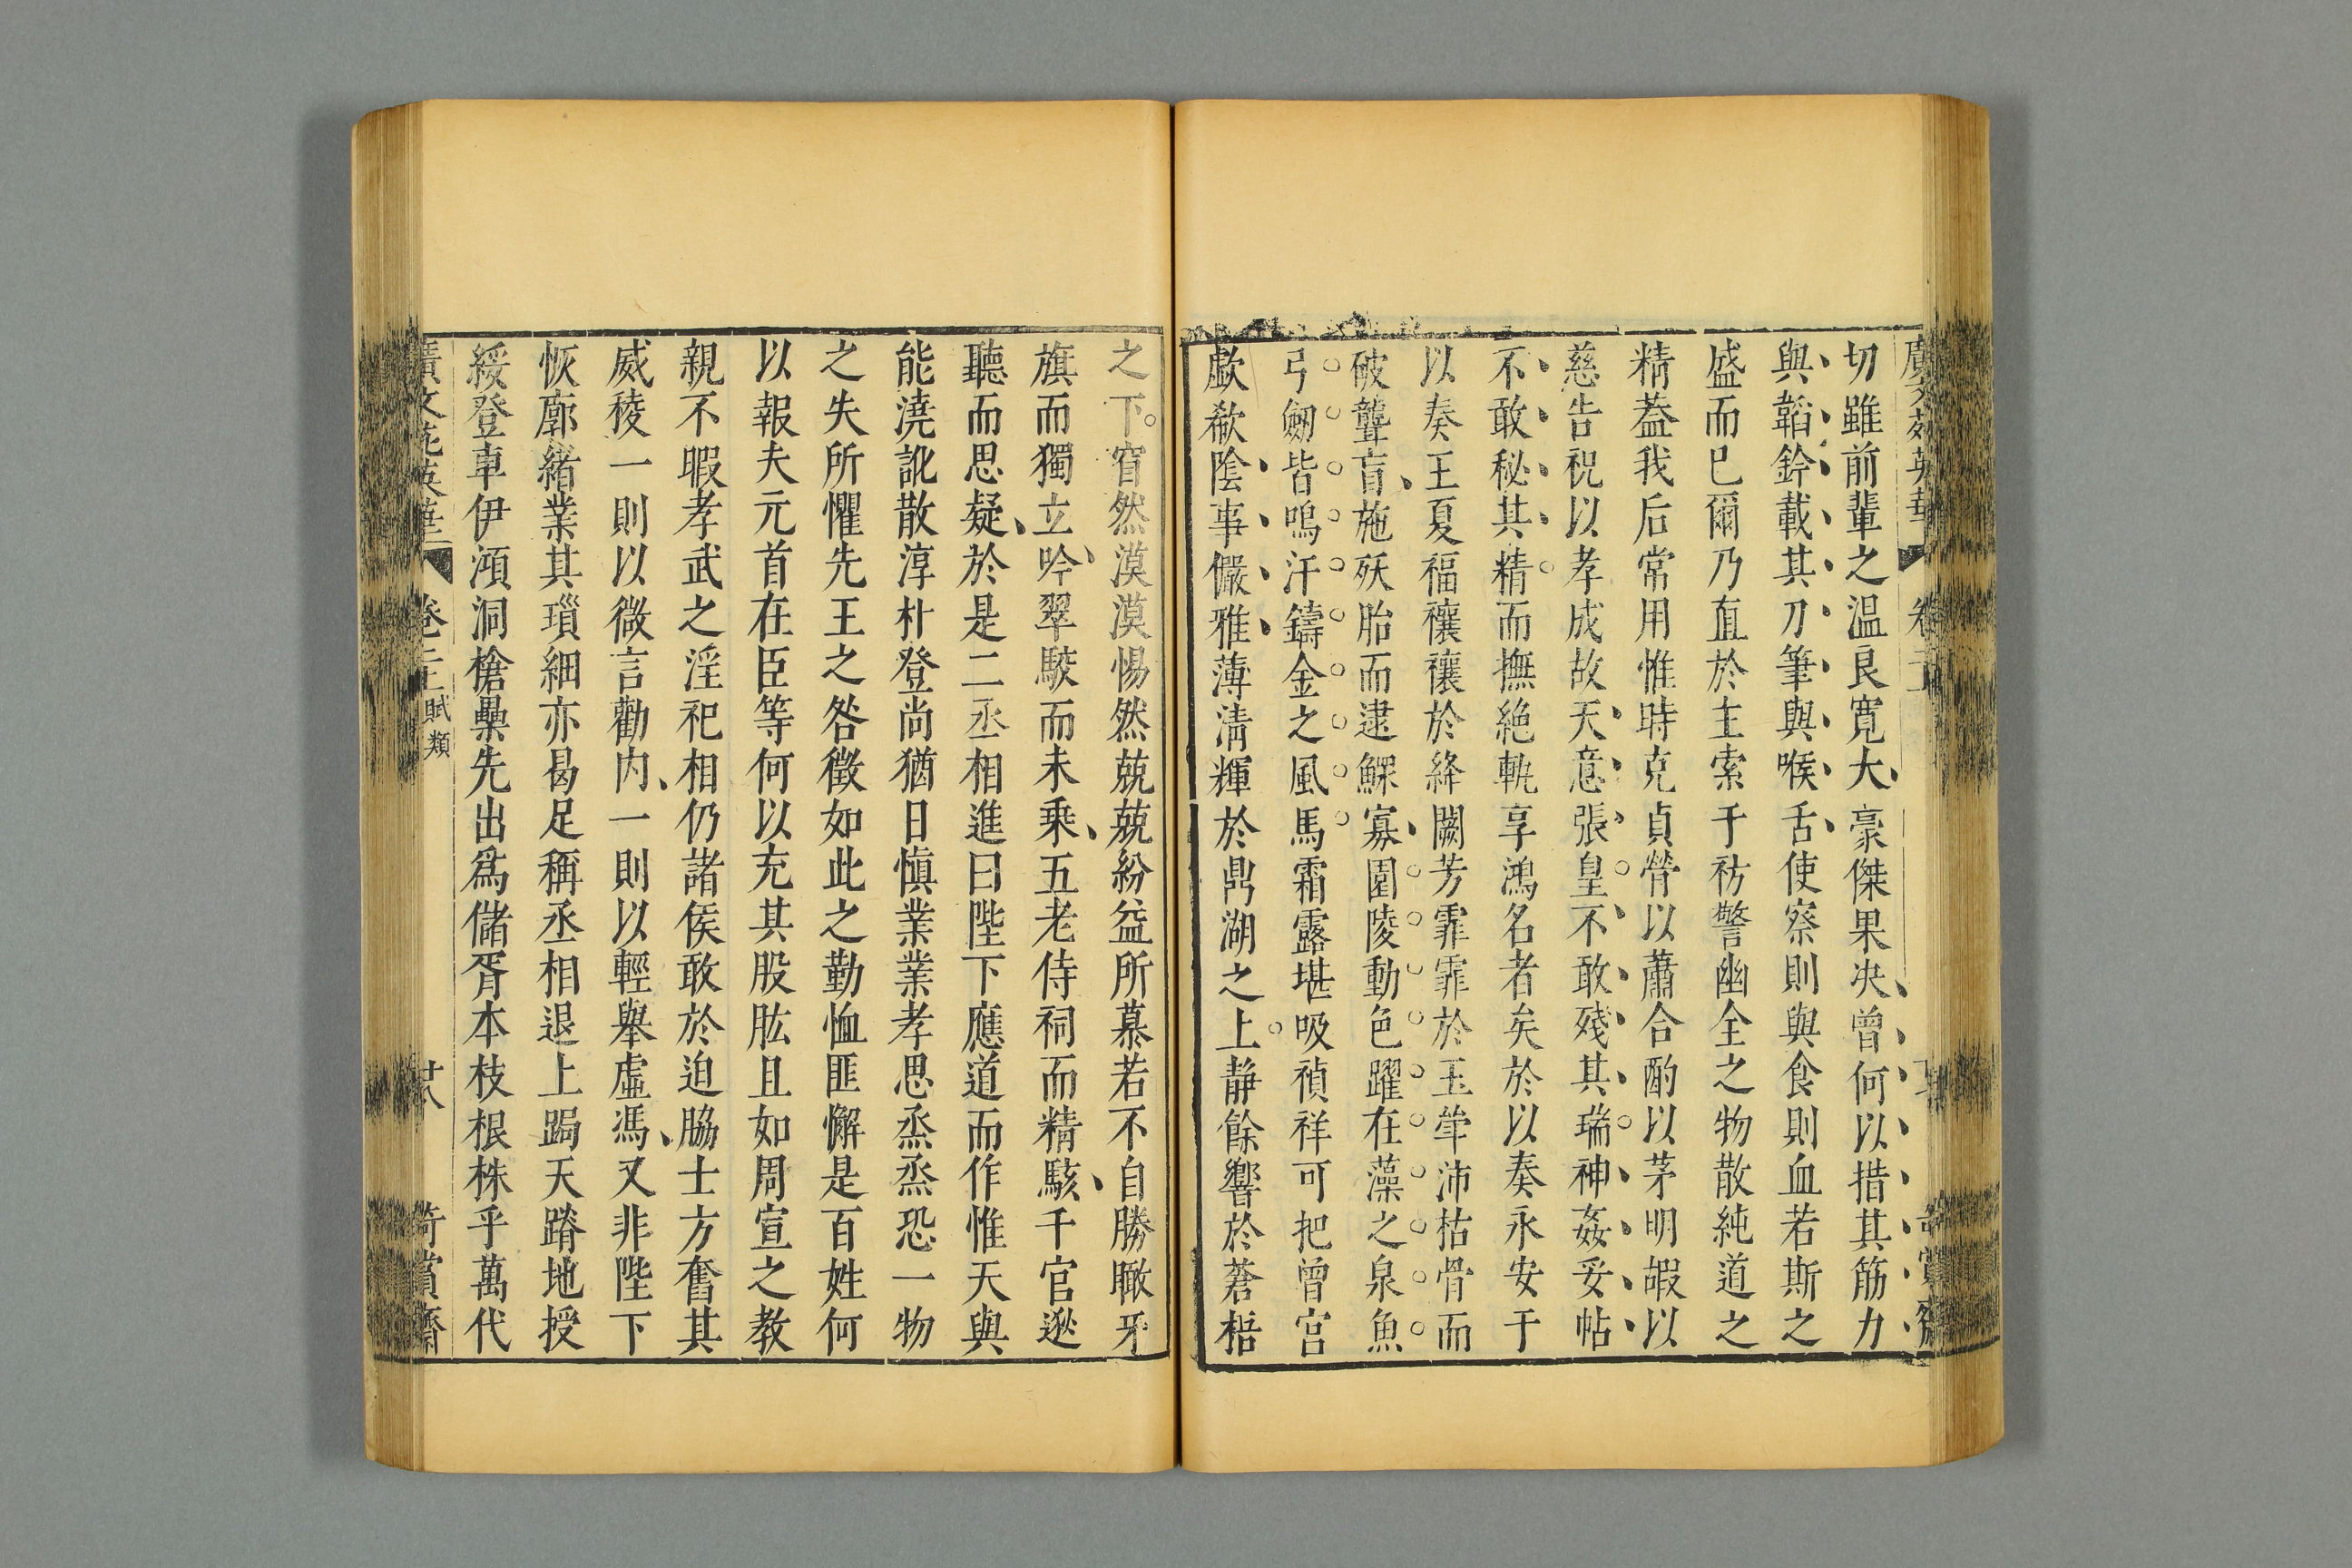 切雖前輩之温良寛大豪傑果决曾何以措其筋力
與韜鈐載其刀筆與喉舌使察則與食則血若斯之
盛而已爾乃直於主索于祊警幽全之物散純道之
精葢我后常用惟時克貞膋以蕭合酌以茅明嘏以
慈告祝以孝成故天意張皇不敢殘其瑞神姦妥帖
不敢秘其精而撫絶軌享鴻名者矣於以奏永安于
以奏王夏福穰穰於絳闕芳霏霏於玉斝沛枯骨而
破聾盲施殀胎而逮鰥寡園陵動色躍在藻之泉魚
弓劒皆鳴汗鑄金之風馬霜露堪吸禎祥可把曾宫
歔欷陰事儼雅薄清輝於鼎湖之上静餘響於蒼梧
之下窅然漠漠惕然兢兢紛益所慕若不自勝瞰牙
旗而獨立吟翠駮而未乗五老侍祠而精駭千官逖
聽而思疑於是二丞相進曰陛下應道而作惟天與
能澆訛散淳朴登尚猶日愼業業孝思烝烝恐一物
之失所懼先王之咎徵如此之勤恤匪懈是百姓何
以報夫元首在臣等何以充其股肱且如周宣之教
親不暇孝武之淫祀相仍諸侯敢於迫脇士方奮其
威稜一則以微言勸内一則以輕舉虛馮又非陛下
恢廓緒業其瑣細亦曷足稱丞相退上跼天蹐地授
綏登車伊澒洞槍纍先出爲儲胥本枝根株乎萬代
廣文苑英華
賦類
十八
竒賞齋